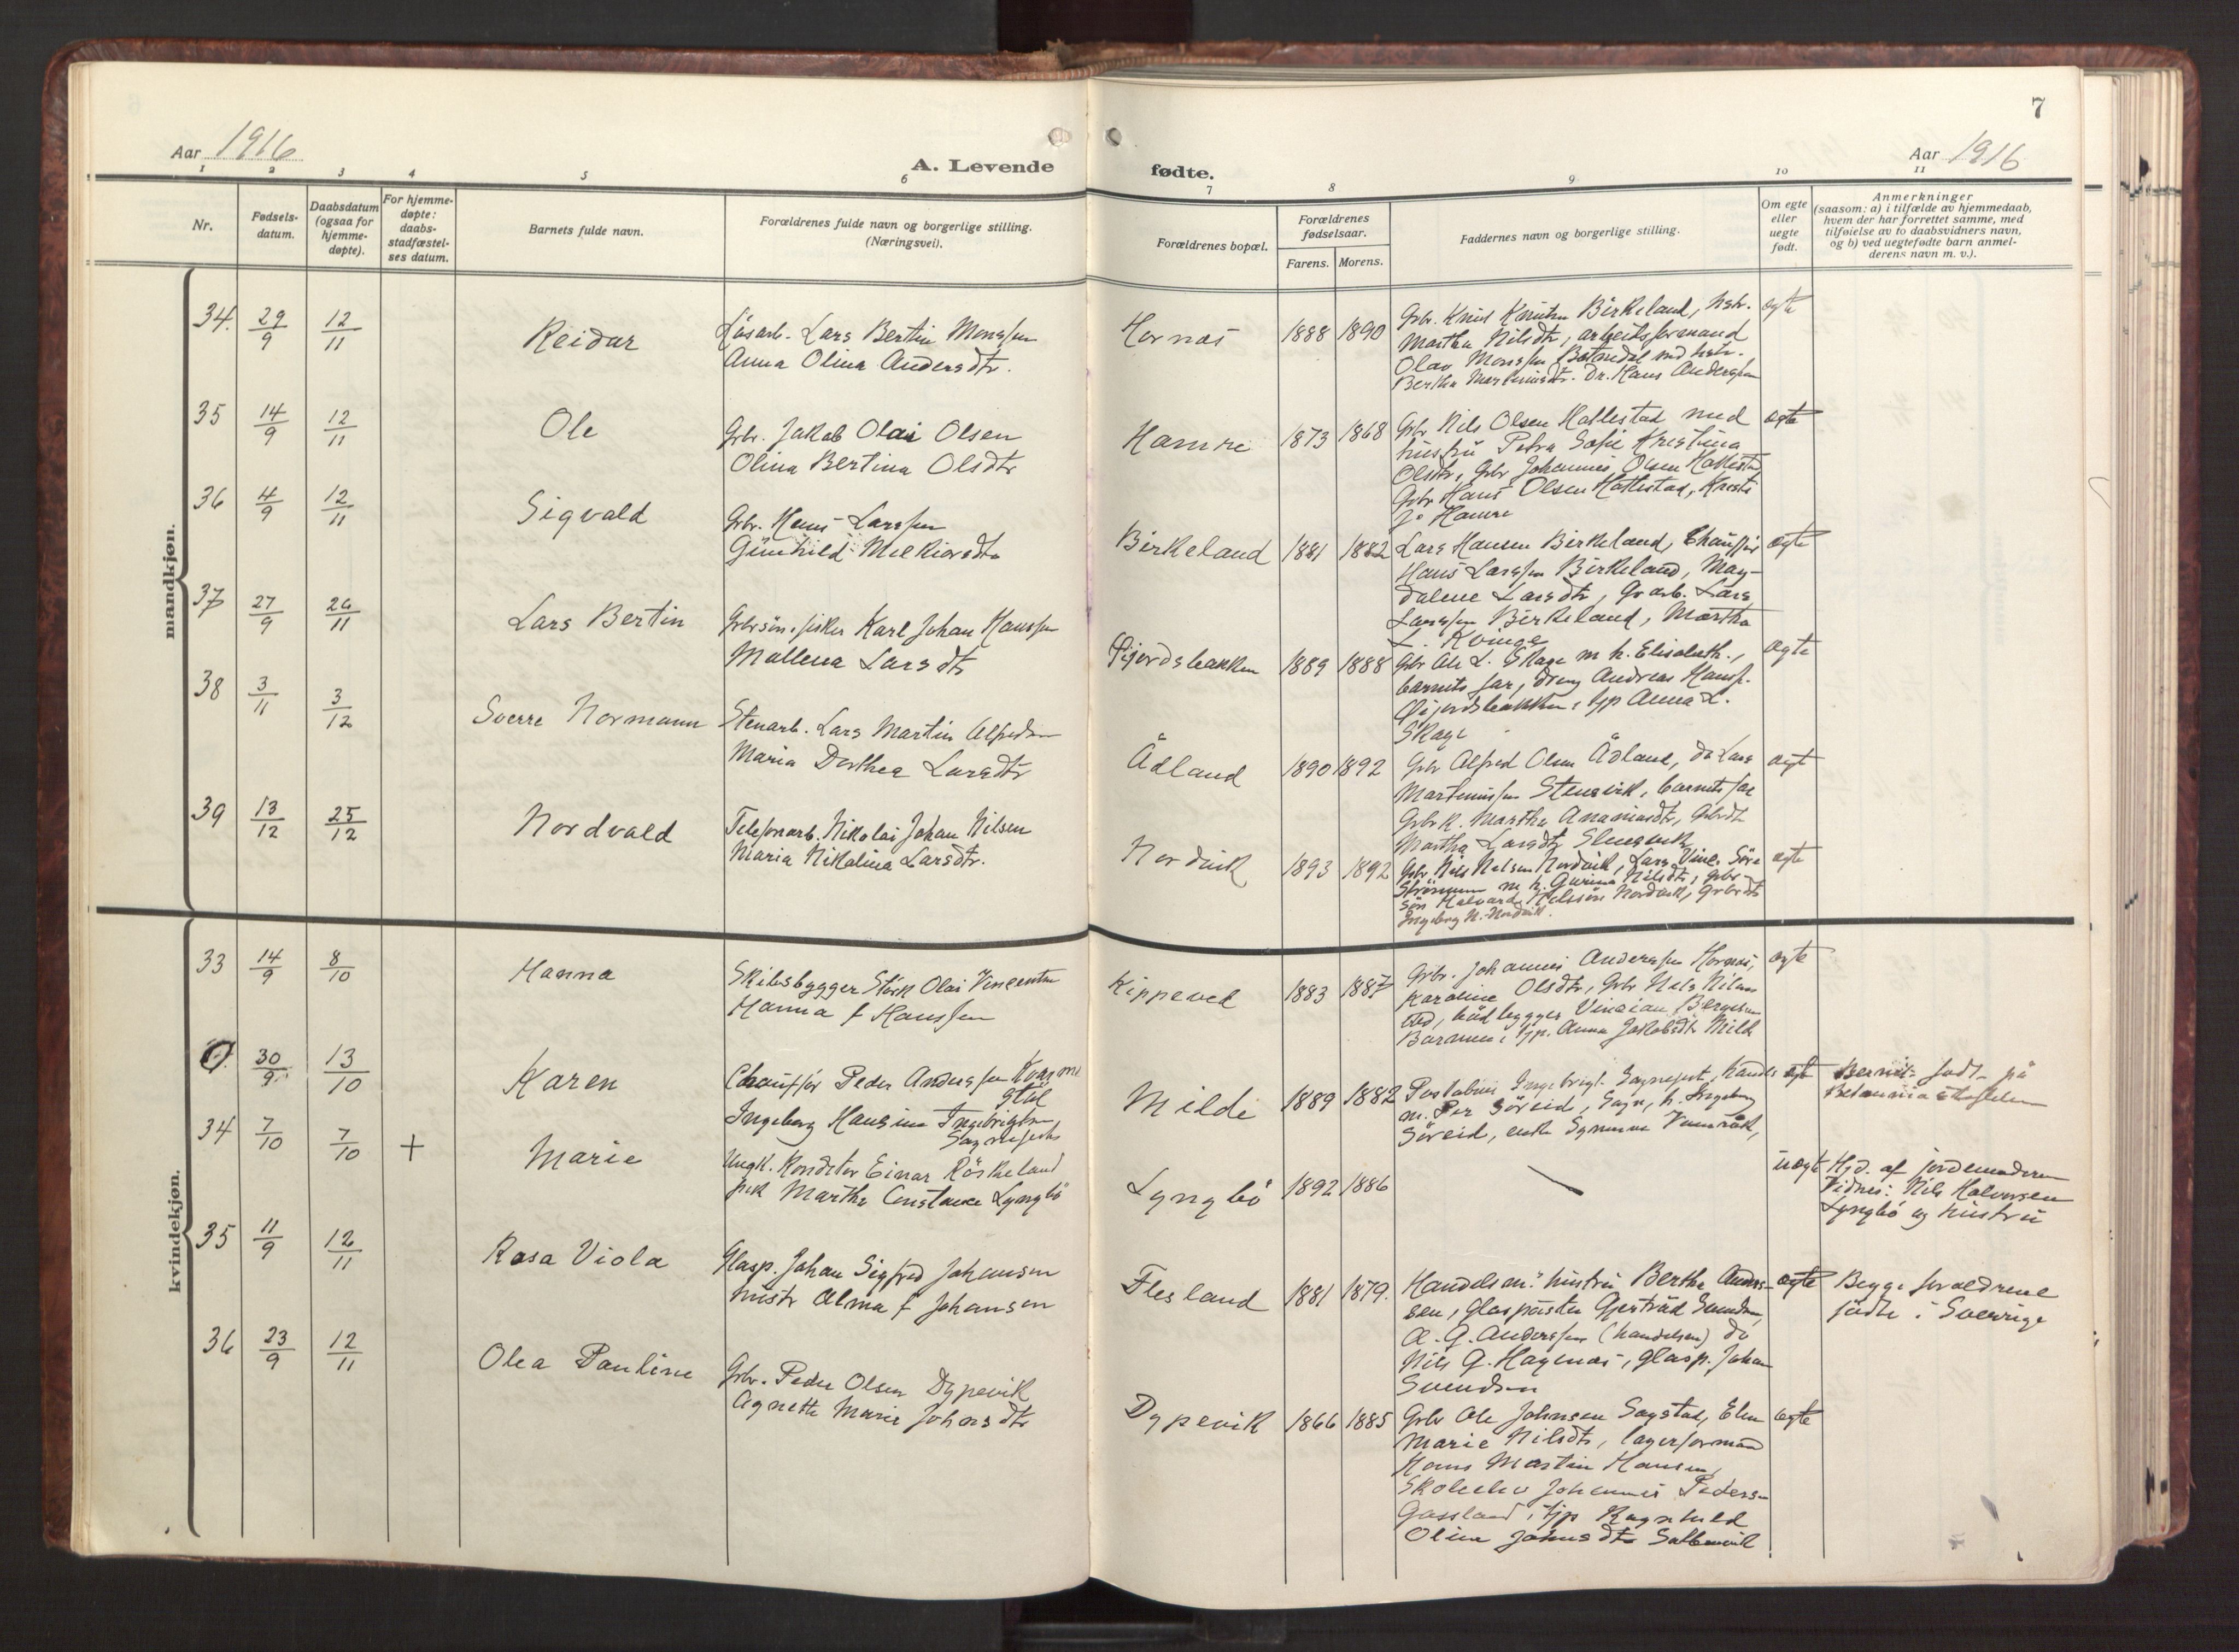 7
Aar 1916
Aar 1916
A. Levende
fødte.
1 2 3 4 5 6 7 8 9 10 11
Nr.
Fødsels-
datum.
Daabsdatum
(ogsaa for
hjemme-
døpte).
For hjemme-
døpte:
daabs-
stadfæstel-
ses datum.
Barnets fulde navn.
Forældrenes fulde navn og borgerlige stilling.
(Næringsvei).
Forældrenes bopæl.
Forældrenes
fødselsaar.
Farens. Morens.
Faddernes navn og borgerlige stilling.
Om egte
eller
uegte
født.
Anmerkninger
(saasom: a) i tilfælde av hjemmedaab,
hvem der har forrettet samme, med
tilføielse av to daabsvidners navn,
og b) ved uegtefødte barn anmel-
derens navn m. v.).
mandkjøn.
34. 29/9 12/11 Reidar
Løsarb. Lars Bertin Monssen
Anna Olina Andersdtr.
Hornæs 1888 1890
Grbr. Knut Knutsen Birkeland, hstr.
Martha Nilsdtr, arbeidsformand
Olav Monssen Botnedal med hstr.
Bertha Martinusdtr. Dr. Hans Anderssen
egte
35 14/9 12/11 Ole
Grbr. Jakob Olai Olsen
Olina Bertina Olsdtr
Hamre 1873 1868
Grbr Nils Olsen Hattestad med
hustru Petra Sofie Kristina
Olsdtr, Grbr Johannes Olsen Hattestad
Grbr Hans Olsen Hattestad, Kristi
J. Hamre
egte
36 4/9 12/11 Sigvald
Grbr. Hans Larssen
Gunhild Melkiorsdtr
Birkeland 1881 1882
Lars Hansen Birkeland, Chauffør
Hans Larssen Birkeland, Mag-
dalene Larsdtr, Grarb. Lars
Larssen Birkeland, Martha
L. Kvinge
egte
37 27/9 26/11 Lars Bertin
Grbrsøn, fisker Karl Johan Hanssen
Mallena Larsdtr
1889 1888
Grbr Ole L. Skage m h. Elisabeth,
barnets far, dreng Andreas Hanss.
tjp Anna L.
Skage
egte
38 3/11 3/12 Sverre Normann
Stenarb. Lars Martin Alfredsen
Maria Dorthea Larsdtr
Ådland 1890 1892
Grbr Alfred Olsen Ådland, do Lars
Martinussen Stensvik, barnets far
Grbrk. Martha Ananiasdtr, Grbrdtr
Martha Larsdtr Stensvik
egt
39 13/12 25/12 Nordvald
Telefonarb. Nikolai Johan Nilsen
Maria Nikolina Larsdtr.
Nordvik 1893 1892
Grbr Nils Nilsen Nordvik, Lars Vinc. Søre
Strømmen m h. Gurina Nilsdtr, Grbr
søn Halvard Nilssen Nordvik, Grbrdtr
Ingeborg N. Nordvik.
egte
kvindekjøn.
33 14/9 8/10 Hanna
Skibsbygger Stark Olai Vincentsen
Hanna f Hanssen
Kippeved 1883 1887
Grbr. Johannes Anderssen Hornæs,
Karoline Olsdtr, Grbr Nils Nilsen
tjp. Anna Jakobsdtr Milde
egte
30/9 13/10 Karen
Chauffør Peder Anderssen
Ingeborg Hansine Ingebrigtsen
Milde 1889 1882
m. Per Søreid, h. Ingeborg
Søreid, enke
egte
Barnet født på
Betania
34 7/10 7/10 + Marie
Ungk. Konditor Einar Röskeland
pik Martha Constance Lyngbö
Lyngbö 1892 1886
uegt
Hjd. af jordemoderen
Vidner: Nils Halvorsen
Lyngbö og hustru
35 11/9 12/11 Rosa Viola
Glasp. Johan Sigfred Johansen
hustr Alma f Johansen
Flesland 1881 1879.
Handelsm. hustru Bertha Anders-
sen, Glaspuster Gertrud Svendsen,
A. G. Anderssen (handelsm) do
Nils G. Hagenæs, glasp. Johan
Svendsen
egte
Begge forældrene
födte i Sverrige
36 23/9 12/11 Olea Pauline
Grbr. Peder Olsen Dypevik
Agnethe Marie Johnsdtr
Dypevik 1866 1885
Grbr Ole Johnsen Søgstad, Elen
Marie Nilsdtr, lagerformand
Hans Martin Hansen,
Skoleelev Johannes Peders-
Gassland, tjp Ragnhild
Olina Johnsdtr
egte